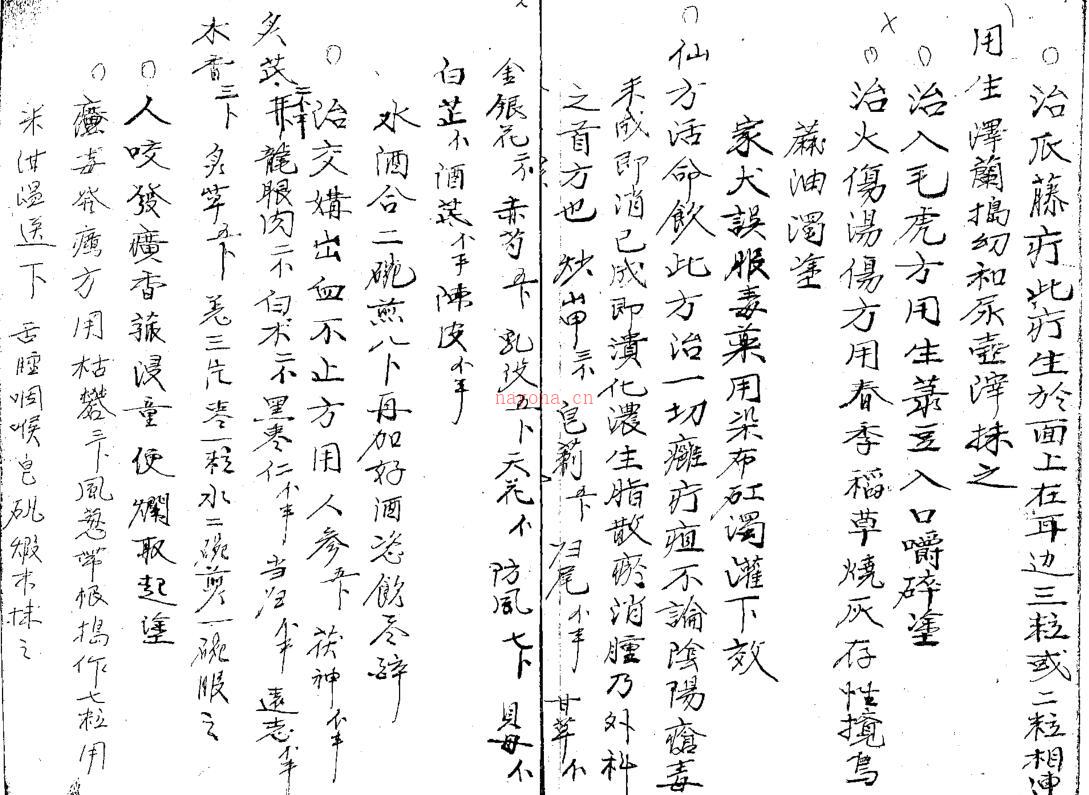 ○治爪藤疔此疔生於面上在耳边三粒或二粒相連
用生澤蘭搗幼和尿壺滓抹之
○治入毛虎方用生菉豆入口嚼碎塗
○治火傷湯傷方用春季稻草燒灰存性攪烏
蔴油濁塗
家犬誤服毒藥用染布缸濁灌下效
○仙方活命飲此方治一切癰疔疽不論陰陽瘡毒
未成即消已成即潰化濃生脂散瘀消腫乃外科
之首方也 炒山甲 皂莿 归尾 甘草
金銀花 赤芍 乳没五卜 天花 防風七卜 貝母
白芷 酒芪 陳皮
水酒合二碗煎八卜再加好酒恣飲尽醉
○治交媾出血不止方用人參 茯神
炙芪 龍眼肉 白术 黑棗仁 当归 遠志
木香三卜 炙草 羌三片 棗一粒水二碗煎一碗服之
○人咬發癀香菰浸童便爛取起塗
○癀毒發癀方用枯礬三卜風葱帶根搗作七粒用
米泔温送下 舌腫咽喉皂矾煅末抹之
nayona.cn